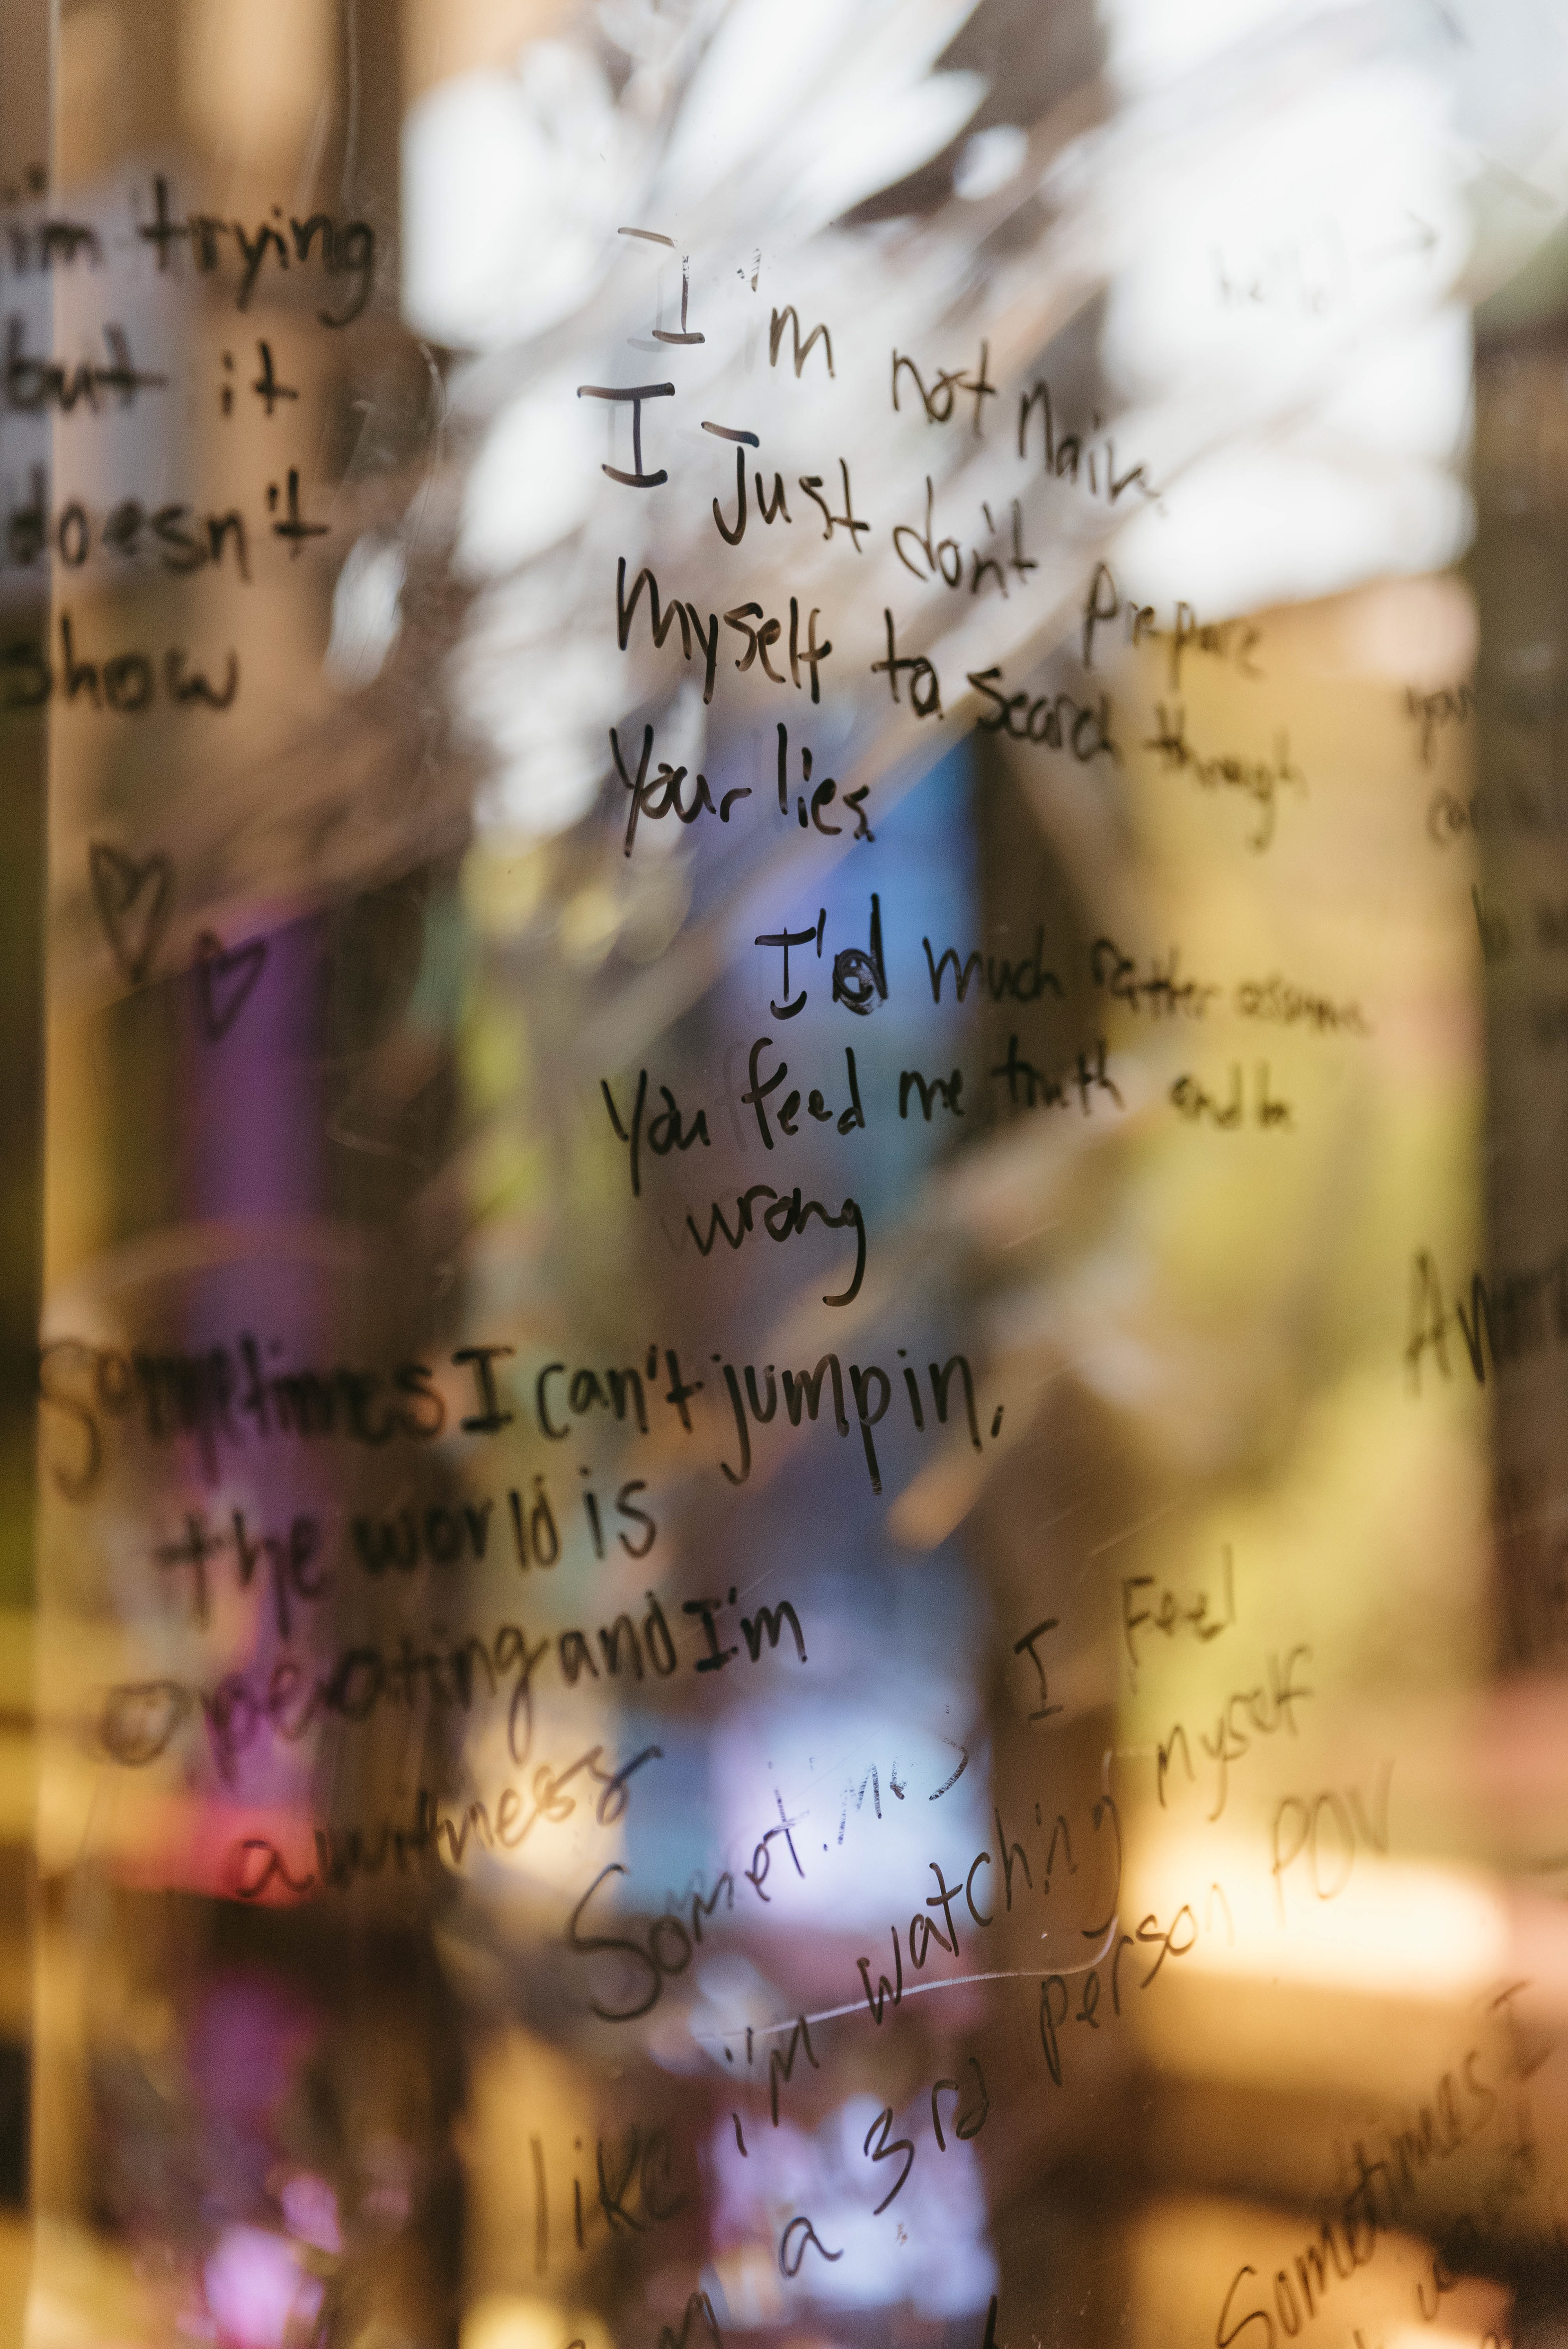 i'm trying
but it
doesn't
show
I'm not naive
I Just don't prepare
Myself to search through
Your lies.
I'd much rather assume
You feed me truth and be
wrong
Sometimes I can't jump in,
the world is
operating and I'm
a witness
Sometimes I Feel
like i'm watching myself
a 3rd person POV
Sometimes I